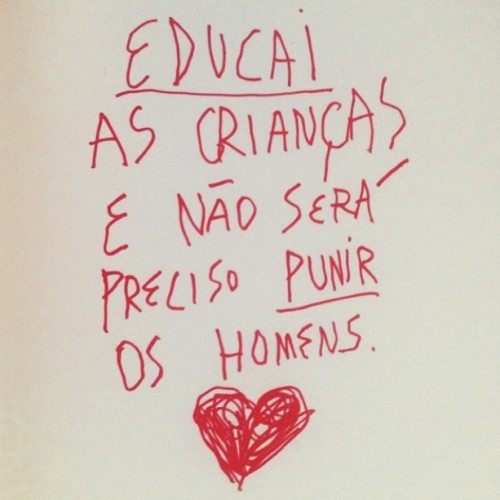 EDUCAI
AS CRIANÇAS
E NÃO SERÁ
PRECISO PUNIR
OS HOMENS.